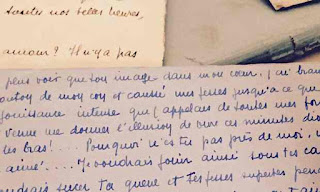 toutes nos belles heures,
amour ? Il n'y a pas
peux voir que ton image dans mon cœur, j'ai bran
outon de mon con et caressé mes fesses jusqu'à ce que
jouissance intense que j'appelais de toutes mes for
venue me donner l'illusion de vivre ces minutes di
tes bras ! .... Pourquoi n'es tu pas près de moi,
aimé ..... Je voudrais jouir ainsi sous tes ca
udrais sucer ta queue et tes fesses superbes pend